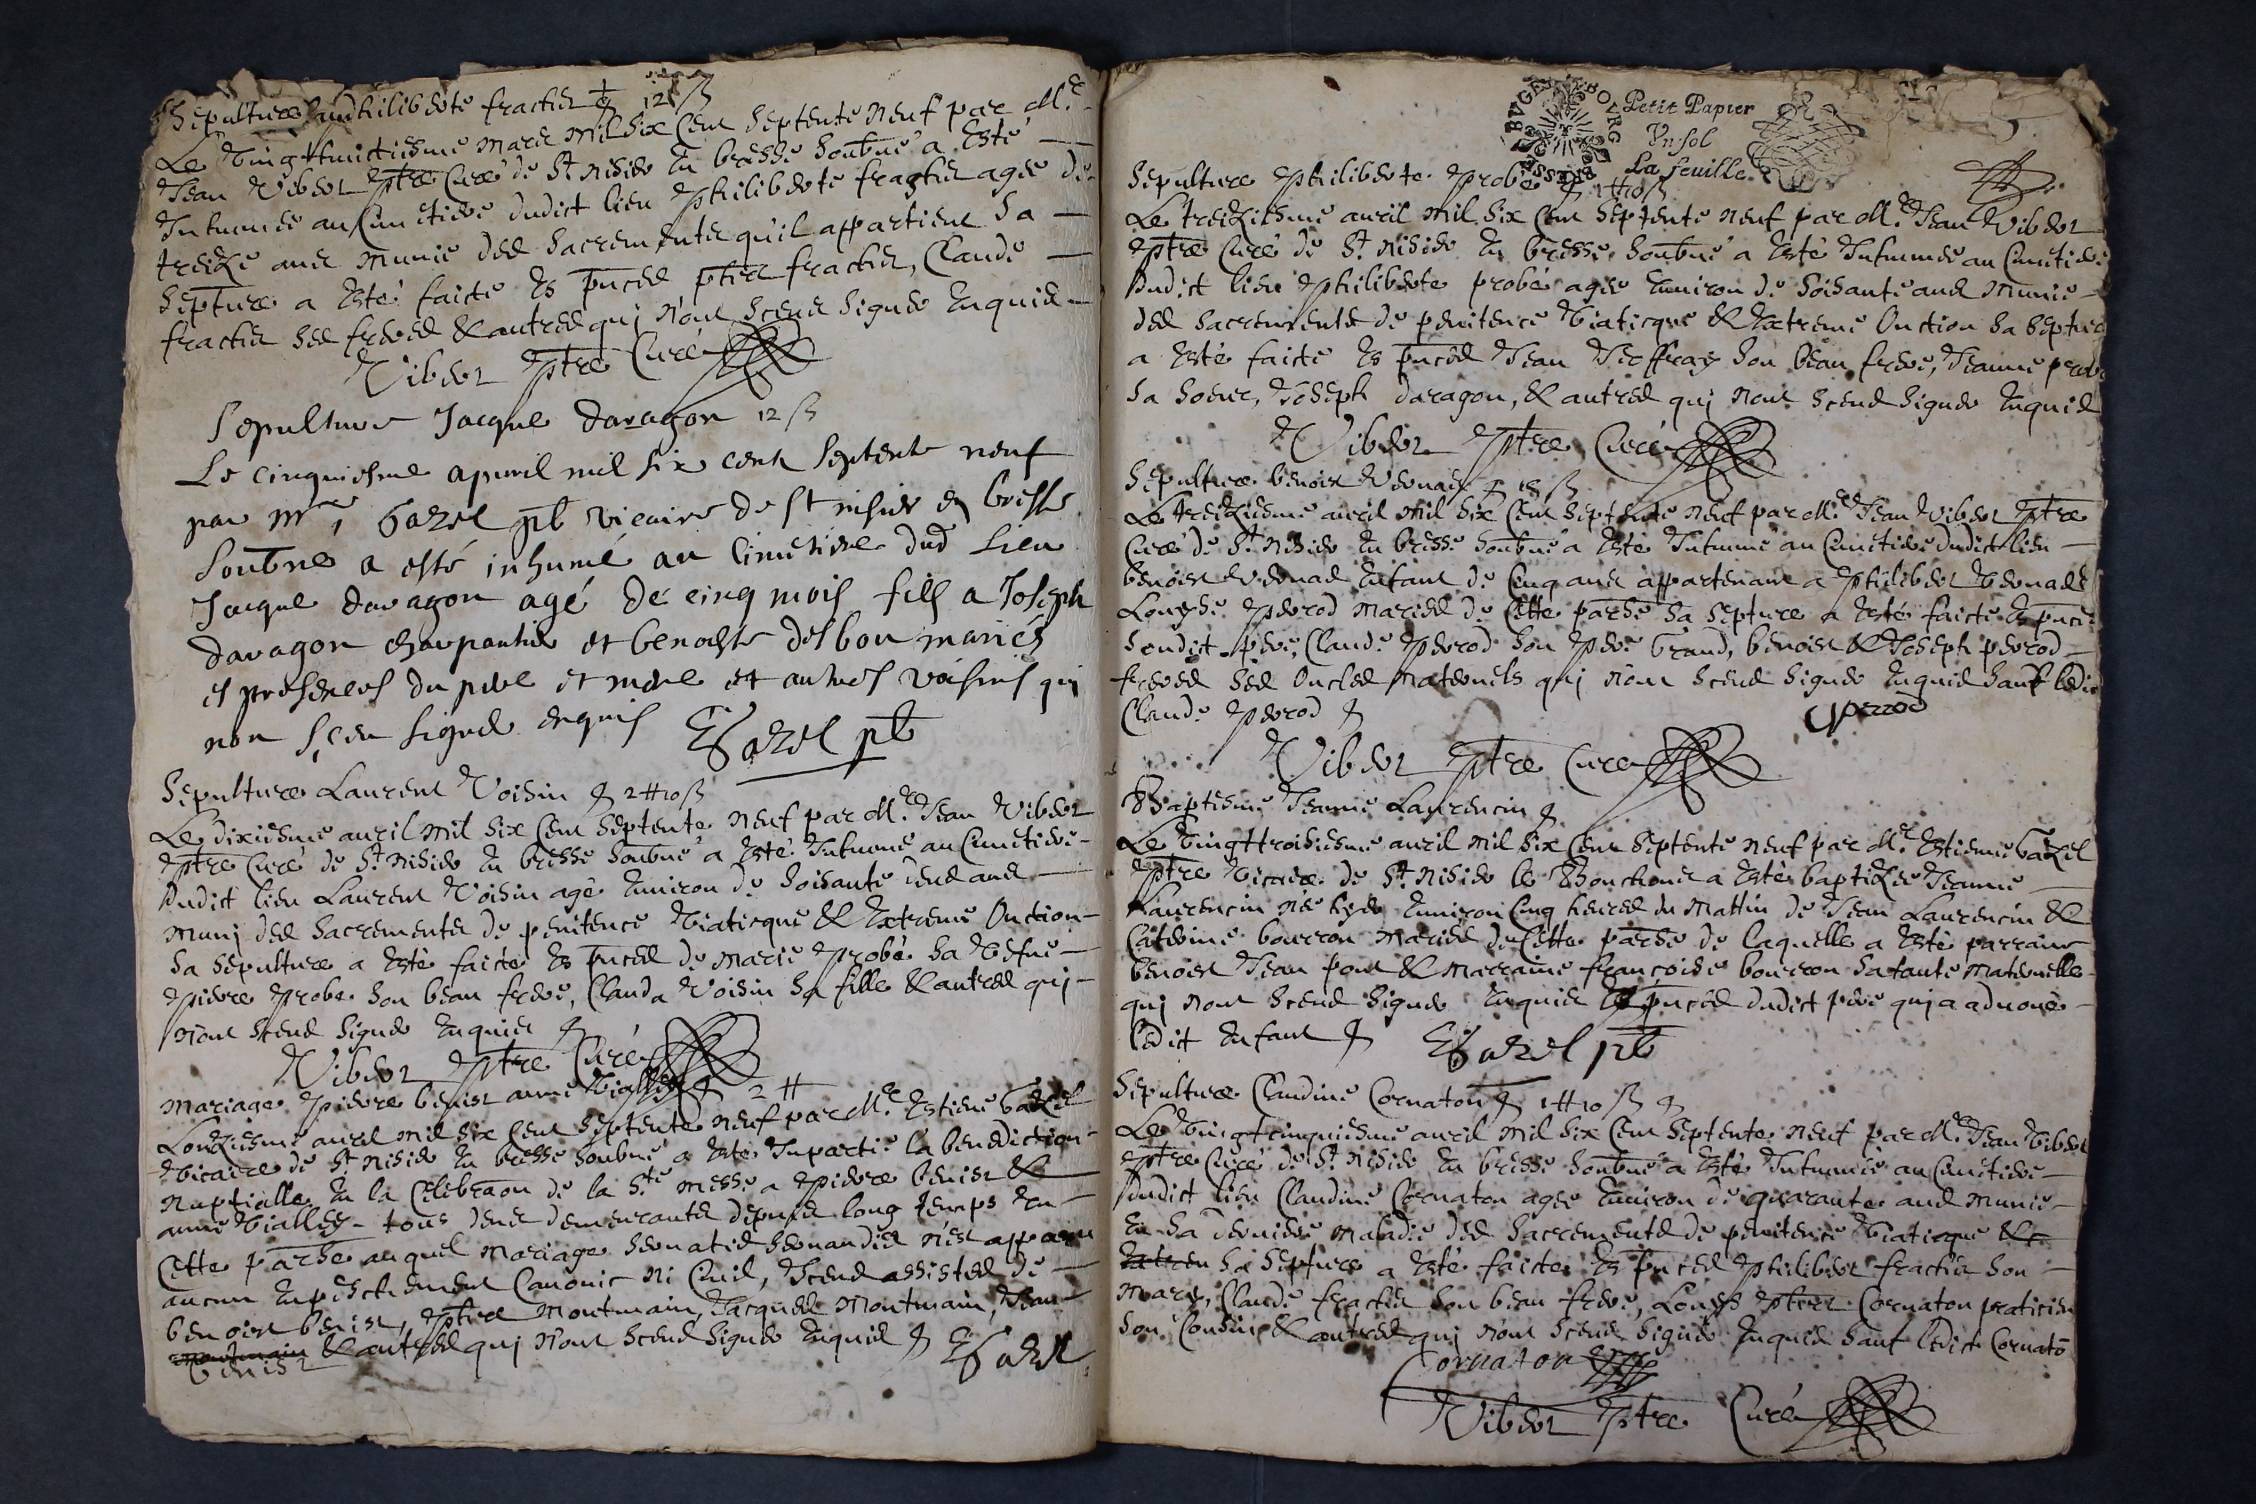 Sepulture philiberte fractier 12 ß
Le vingthuictiesme mars mil six cent septente neuf par Mre
Jean Viber ptre curé de St nisier en bresse soubné a esté
Inhumée au cimetiere dudict lieu philiberte fractier agée de
treize ans munie des sacrements qu'il appartient sa
septure a esté faicte es pnces ptes fractier, Claude
fractier ses freres & autres qui n'ont sceus signer enquis
Viber ptre curé
Sepulture Jacque daragon 12 ß
Le cinquiesme apvril mil six cent septente neuf
par mre Gazel pb vicaire de st nisier en bresse
soubné a esté inhumé au cimetiere dud lieu
Jacque daragon agé de cinq mois fils a Joseph
daragon charpantier et benoiste desbou mariés
es presences du pere et mere et autres voisins qui
non sceu signer enquis EGazel pb
Sepulture Laurent Voisin 2 ₶ 10 ß
Le dixiesme auril mil six cent septente neuf par Mre Jean Viber
ptre curé de St nisier en bresse soubné a esté Inhumé au cimetiere
dudict lieu Laurent Voisin agé enuiron de soisante deux ans
muni des sacrements de penitence viaticque & extreme onction
sa sepulture a esté faicte es pnces de marie probé sa vefue
pierre probé son beau frere, Clauda Voisin sa fille & autres qui
n'ont sceus signer enquis
Viber ptre Curé
mariage pierre benist anne Vialley 2 ₶
Lonziesme auril mil six cent septente neuf par Mre Estiene Gazel
vicaire de St nisier en bresse soubné a esté Inpartie la benediction
nuptialle en la celebraon de la Ste messe a pierre benist &
anne Vialley tous deux demeurants depuis long temps en
cette parhe auquel mariage seruatis seruandis n'est apparu
aucun enpeschement canonic ni ciuil, sceus assistes de
benoist benist, ptre Montmain, Jacques Montmain, Jean
montmain & autres qui n'ont sceus signer enquis EGazel
benist
BVGEY BOURG BRESSE
Petit Papier
Vn sol
La feuille
Sepulture philiberte probé 1 ₶ 10 ß
Le treiziesme auril mil six cent septente neuf par Mre Jean Viber
ptre curé de St nisier en bresse soubné a esté Inhumée au cimetiere
dudict lieu philiberte probé agée enuiron de soisante ans munie
des sacrements de penitence viaticque & extreme onction sa septure
a esté faicte es pnces Jean Jeoffray son beau frere, Jeanne probé
sa soeur, Joseph daragon, & autres qui n'ont sceus signer enquis
Viber ptre Curé
Sepulture benoist Vernad 18 ß
Le treiziesme auril mil six cent septente neuf par Mre Jean Viber ptre
curé de St nisier en bresse soubné a esté Inhumé au cimetiere dudict lieu
benoist Vernad enfant de cinq ans appartenant a philiber Vernad &
Louyse perrod mariés de cette parhe sa septure a esté faicte es pnces
sondict pere, Claude perrod son pere Grand, benoist & Joseph perrod
freres ses oncles maternels qui n'ont sceus signer enquis sauf ledit
Claude perrod C perrod
Viber ptre Curé
Baptesme Jeanne Laurencin
Le vingttroisiesme auril mil six cent septente neuf par Mre Estienne Gazel
ptre vicaire de St nisier le Bouchoux a esté baptizée Jeanne
Laurencin née hyer enuiron cinq heures du mattin de Jean Laurencin &
Caterine bourron mariés de cette parhe de laquelle a esté parrain
benoist Jean pont & marraine françoise bourron sa tante maternelle
qui n'ont sceus signer enquis es pnces dudict pere qui a aduoué
ledit enfant EGazel pb
Sepulture Claudine Cornaton 1 ₶ 10 ß
Le vingtcinquiesme auril mil six cent septente neuf par Mre Jean Viber
ptre curé de St nisier en bresse soubné a esté Inhumée au cimetiere
dudict lieu Claudine Cornaton agée enuiron de quarante ans munie
en sa derniere maladie des sacrements de penitence viaticque &
extren sa septure a esté faicte es pnces philiber fractier son
mary, Claude fractier son beau frere, Louys Cornaton praticien
son cousin & autres qui n'ont sceus signer enquis sauf ledict Cornatō
Cornaton
Viber ptre Curé